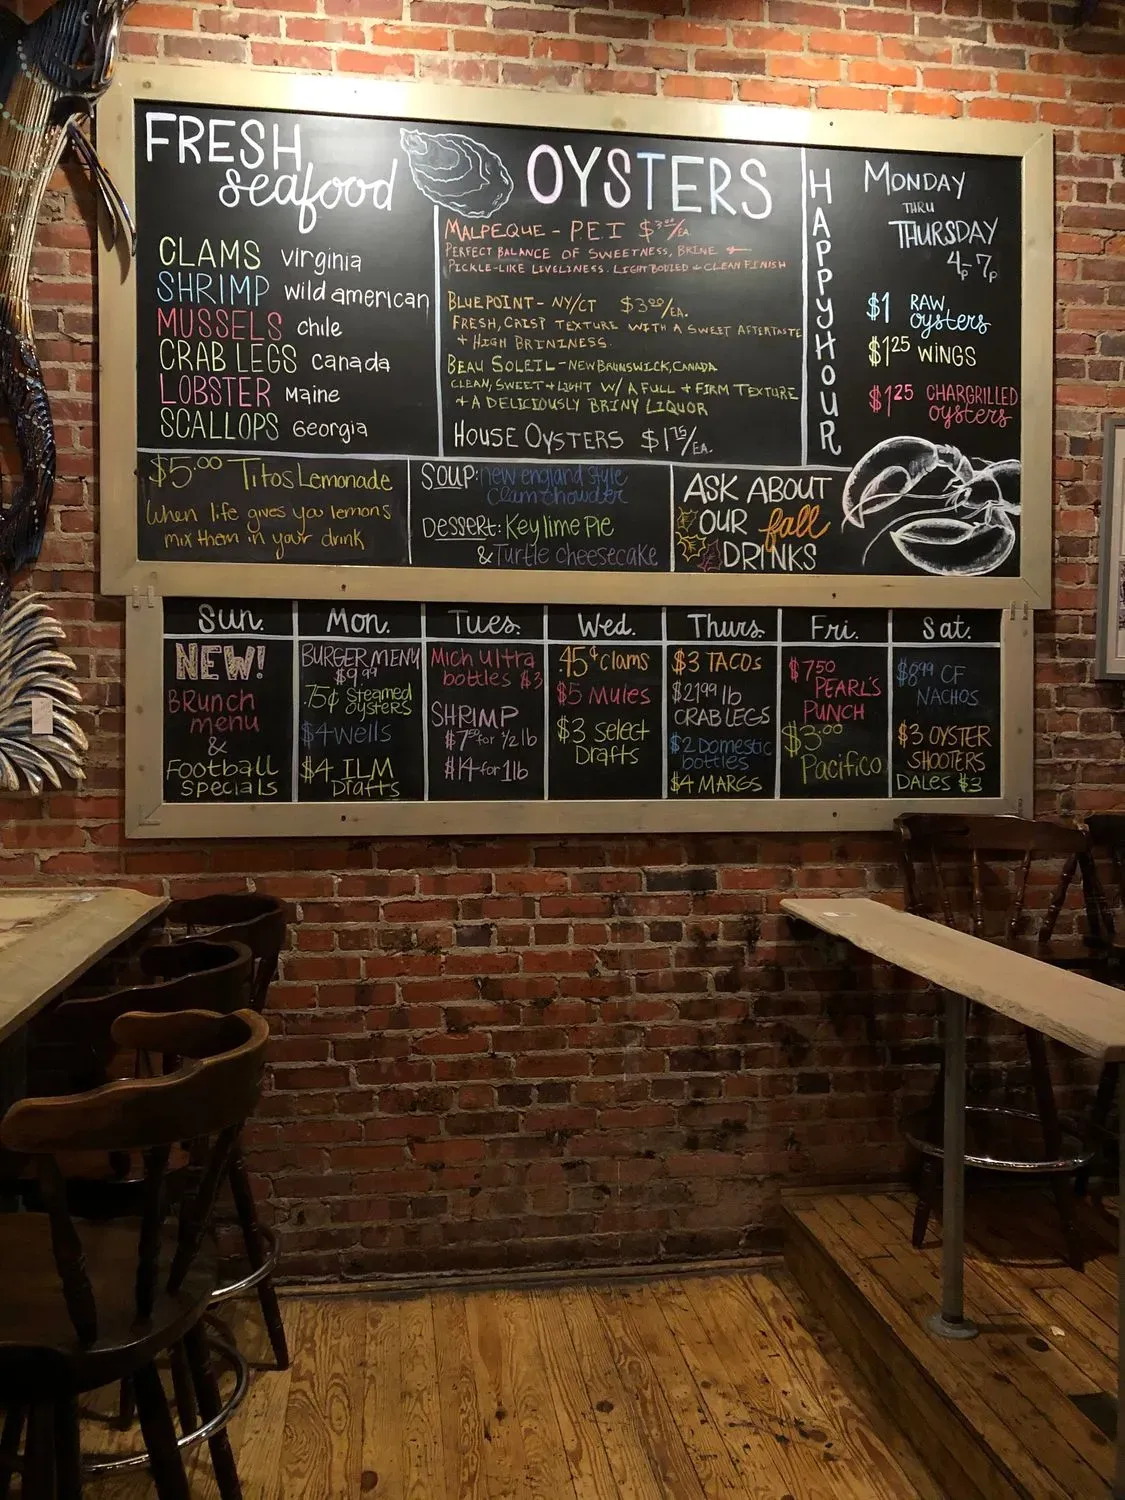 FRESH
seafood
CLAMS virginia
SHRIMP wild american
MUSSELS chile
CRAB LEGS canada
LOBSTER Maine
SCALLOPS Georgia
OYSTERS
MALPEQUE - PEI $3.00/EA
PERFECT BALANCE OF SWEETNESS, BRINE +
PICKLE-LIKE LIVELINESS. LIGHT BODIED + CLEAN FINISH
BLUEPOINT - NY/CT $3.00/EA.
FRESH, CRISP TEXTURE WITH A SWEET AFTERTASTE
+ HIGH BRININESS.
BEAU SOLEIL - NEW BRUNSWICK, CANADA
CLEAN, SWEET + LIGHT W/ A FULL + FIRM TEXTURE
+ A DELICIOUSLY BRINY LIQUOR
HOUSE OYSTERS $1.75/EA.
HAPPY HOUR
MONDAY
THRU
THURSDAY
4p-7p
$1 RAW
oysters
$1.25 WINGS
$1.25 CHARGRILLED
oysters
$5.00 Titos Lemonade
when life gives you lemons
mix them in your drink
SOUP: new england style
clam chowder
DESSERT: Key lime Pie
& Turtle cheesecake
ASK ABOUT
OUR fall
DRINKS
Sun.
NEW!
BRunch
menu
&
Football
specials
Mon.
BURGER MENU
$9.99
.75¢ Steamed
oysters
$4 wells
$4 ILM
Drafts
Tues.
Mich Ultra
bottles $3
SHRIMP
$7.50 for 1/2 lb
$14 for 1lb
Wed.
45¢ clams
$5 Mules
$3 Select
Drafts
Thurs.
$3 TACOS
$21.99 lb
CRAB LEGS
$2 Domestic
bottles
$4 MARGS
Fri.
$7.50
PEARL'S
PUNCH
$3.00
Pacifico
Sat.
$8.99 CF
NACHOS
$3 OYSTER
SHOOTERS
DALES $3